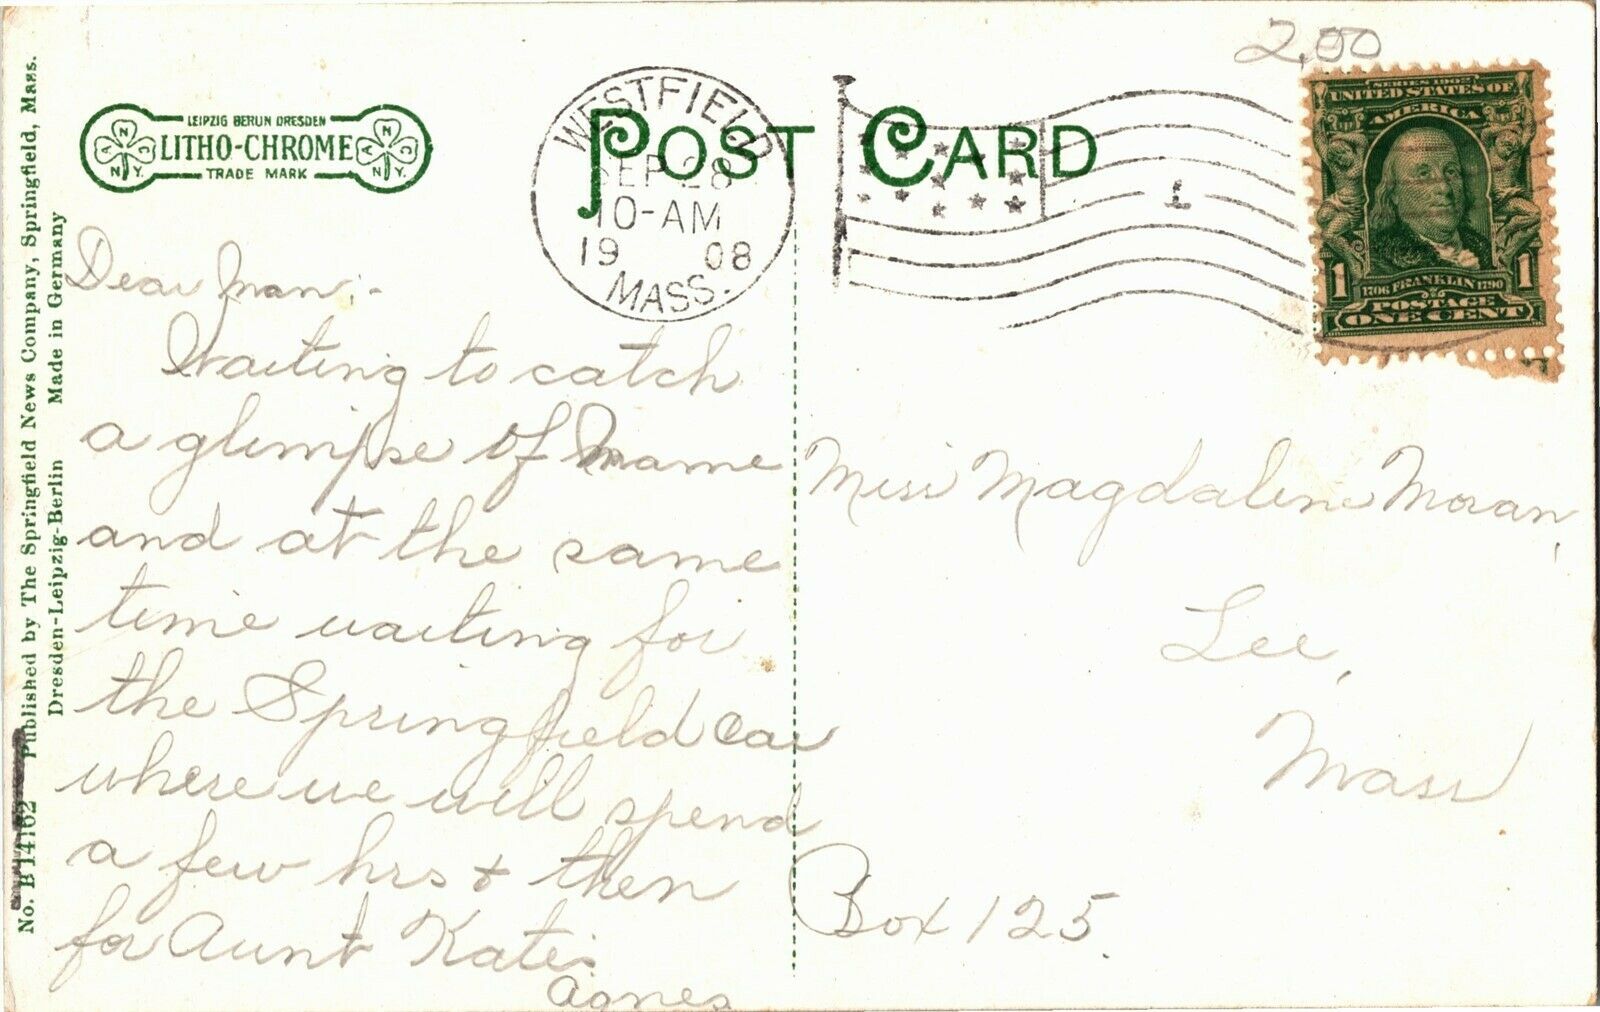 2.00
SERIES 1902
UNITED STATES OF
AMERICA
1706 FRANKLIN 1790
1 1
POSTAGE
ONE CENT
WESTFIELD
SEP 28
10-AM
19 08
MASS.
1
POST CARD
LEIPZIG BERLIN DRESDEN
LITHO-CHROME
TRADE MARK
A N N.Y.
A N C N.Y.
No. B 14162 Published by The Springfield News Company, Springfield, Mass.
Dresden-Leipzig-Berlin Made in Germany
Dear Mam:-
Waiting to catch
a glimpse of Mame
and at the same
time waiting for
the Springfield Car
where we will spend
a few hrs & then
for Aunt Kate's
Agnes
Miss Magdalene Moran,
Lee,
Mass
Box 125.